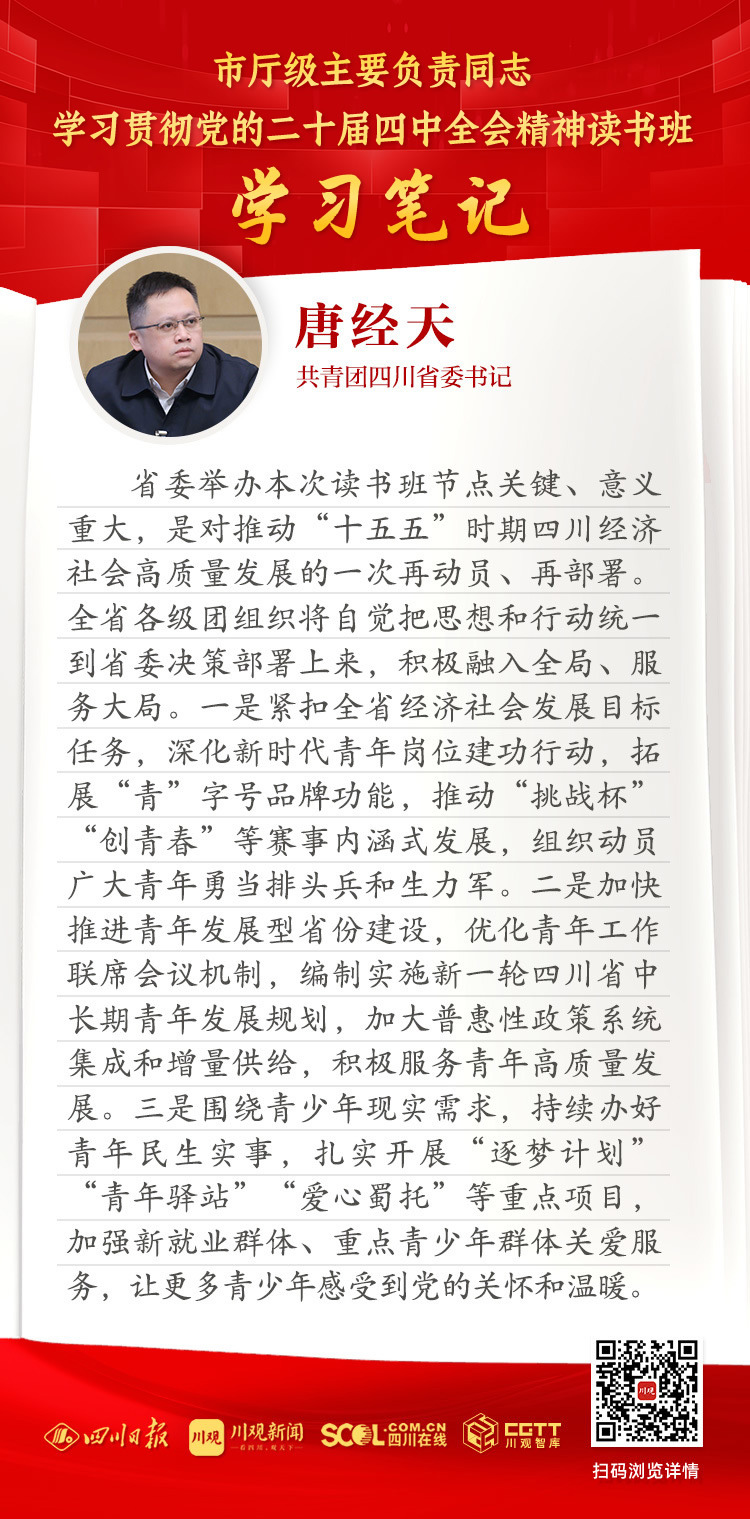 市厅级主要负责同志
学习贯彻党的二十届四中全会精神读书班
学习笔记
唐经天
共青团四川省委书记
省委举办本次读书班节点关键、意义
重大，是对推动“十五五”时期四川经济
社会高质量发展的一次再动员、再部署。
全省各级团组织将自觉把思想和行动统一
到省委决策部署上来，积极融入全局、服
务大局。一是紧扣全省经济社会发展目标
任务，深化新时代青年岗位建功行动，拓
展“青”字号品牌功能，推动“挑战杯”
“创青春”等赛事内涵式发展，组织动员
广大青年勇当排头兵和生力军。二是加快
推进青年发展型省份建设，优化青年工作
联席会议机制，编制实施新一轮四川省中
长期青年发展规划，加大普惠性政策系统
集成和增量供给，积极服务青年高质量发
展。三是围绕青少年现实需求，持续办好
青年民生实事，扎实开展“逐梦计划”
“青年驿站”“爱心蜀托”等重点项目，
加强新就业群体、重点青少年群体关爱服
务，让更多青少年感受到党的关怀和温暖。
四川日报
川观
川观新闻
看四川，观天下
SCOL.COM.CN
四川在线
CGTT
川观智库
川观
扫码浏览详情